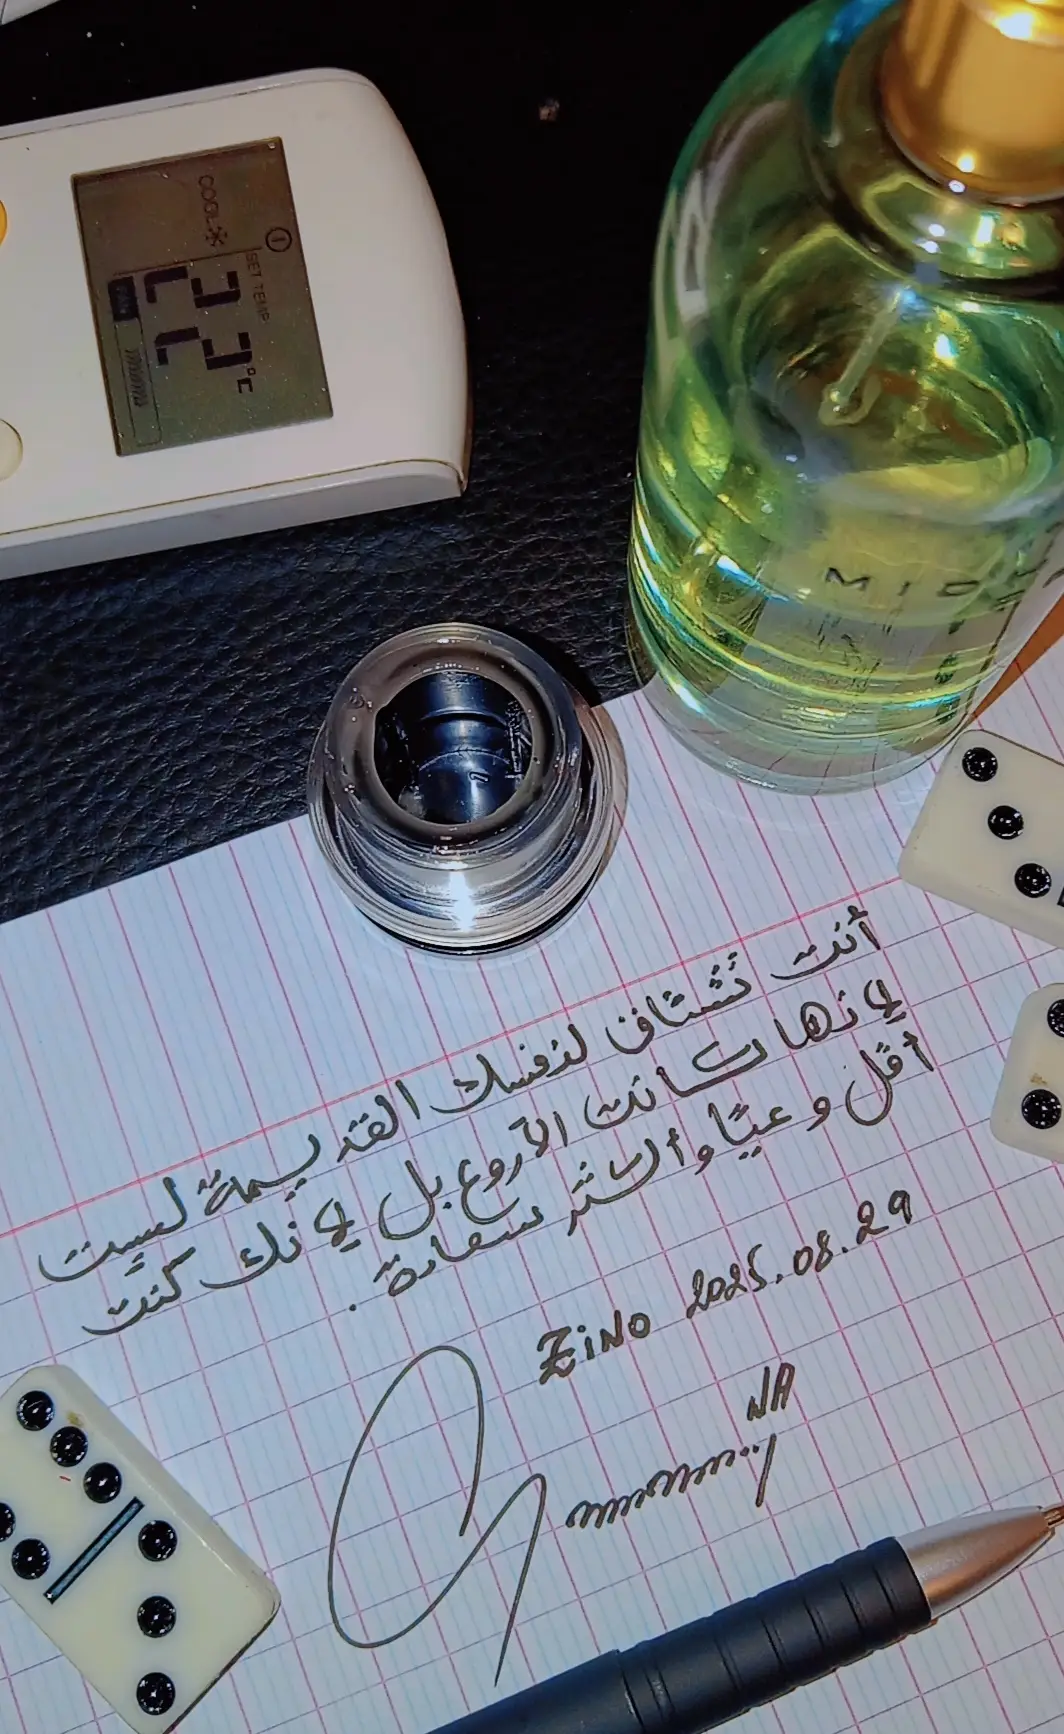 COOL
SET TEMP.
22°C
FAN
أنت تشتاق لنفسك القديمة ليست
لأنها كانت الأروع بل لأنك كنت
أقل وعيًا وأكثر سعادة.
ZiNo 2025.08.29
NA